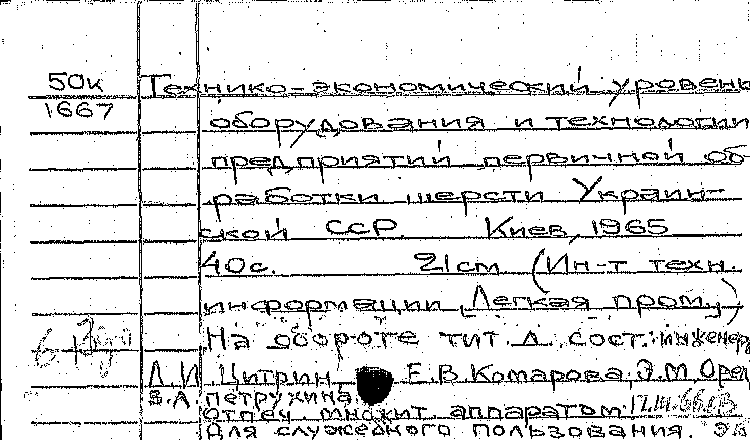 50к Технико-экономический уровень
1667 оборудования и технологии
предприятий первичной об-
работки шерсти Украин-
ской ССР. Киев, 1965
40с. 21см (Ин-т техн.
информации, Легкая пром.)
На обороте тит. л. сост.: инженер
Л.И. Цитрин, Е.В. Комарова, Э.М. Орел
В.А. Петрухина.
Отпеч. множит. аппаратом 12.III.66
Для служебного пользования.